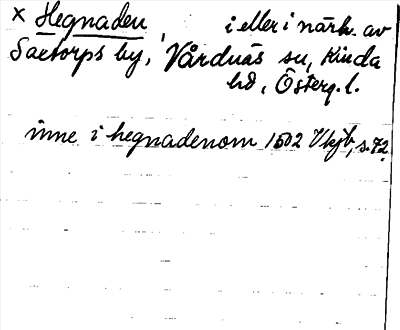 × Hegnaden, i eller i närh. av
Saetorps by, Vårdnäs sn, Kinda
hd, Österg. l.
inne i hegnadenom 1502 Vkjb, s. 72.